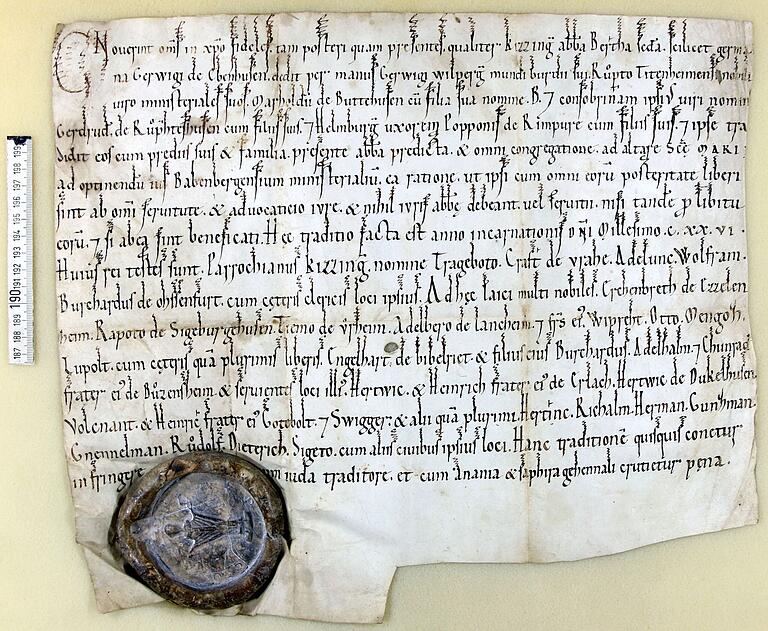 Noverint oms in xpo fideles. tam posteri quam presentes. qualiter kizzing abba Bertha secda. scilicet germa
na Gerwigi de Ebenhusen. dedit per manus Gerwigi wilperg mundiburdii sui. Růpto Titenheimensi nobili
viro ministeriales suos. Marholdū de Buttehusen cū filia sua nomine. B. 7 consobrinam ipsius viri nomine
Gerdrud. de Růphteshusen cum filiis suis. 7 Helmburg uxorem Popponis de Rimpure cum filiis suis. 7 ipse tra
didit eos cum prediis suis & familia. presente abba predicta. & omni congregatione. ad altare Scē MARIE
ad optinendū ius Babenbergensium ministerialiū. ea ratione. ut ipsi cum omni eorū posteritate liberi
sint ab omi servitute. & advocaticio ivre. & nihil ivris abbę debeant. vel servitii. nisi tandē p libitu
eorū. 7 si abea sint beneficati. Hęc traditio facta est anno incarnationis dni Millesimo. c. xx. vi.
Huius rei testes sunt. Parrochianus kizzing. nomine Trageboto. Craft de vrahe. Adelunc. Wolfram.
Burchardus de ohssenfurt. cum cęteris clericis loci ipsius. Adhęc laici multi nobiles. Crehenbreth de Ezzelen
heim. Rapoto de Sigeburgehusen. Tiemo de vrheim. Adelbero de lancheim. 7 frs ei. Wipreht. Otto. Mengoh.
Lupolt. cum ceteris quā plurimis liberis. Engelhart. de bibelriet. & filius eius Burchardus. Adelhalm. 7 Chunrad
frater ei de Bůzensheim. & servientes loci illi. Hertwic. & Heinrich frater ei de Erlach. Hertwic de Dukelhusen.
Volcnant. & Heinric frater ei Gotebolt. 7 Swigger. & alii quā plurimi. Hertinc. Richalm. Herman. Gunthman.
Gnennelman. Růdolf. Dieterich. Sigeto. cum aliis civibus ipsius loci. Hanc traditionē quisquis conetur
infringere iuda traditore. et cum Anania & saphira gehennali crucietur pena.